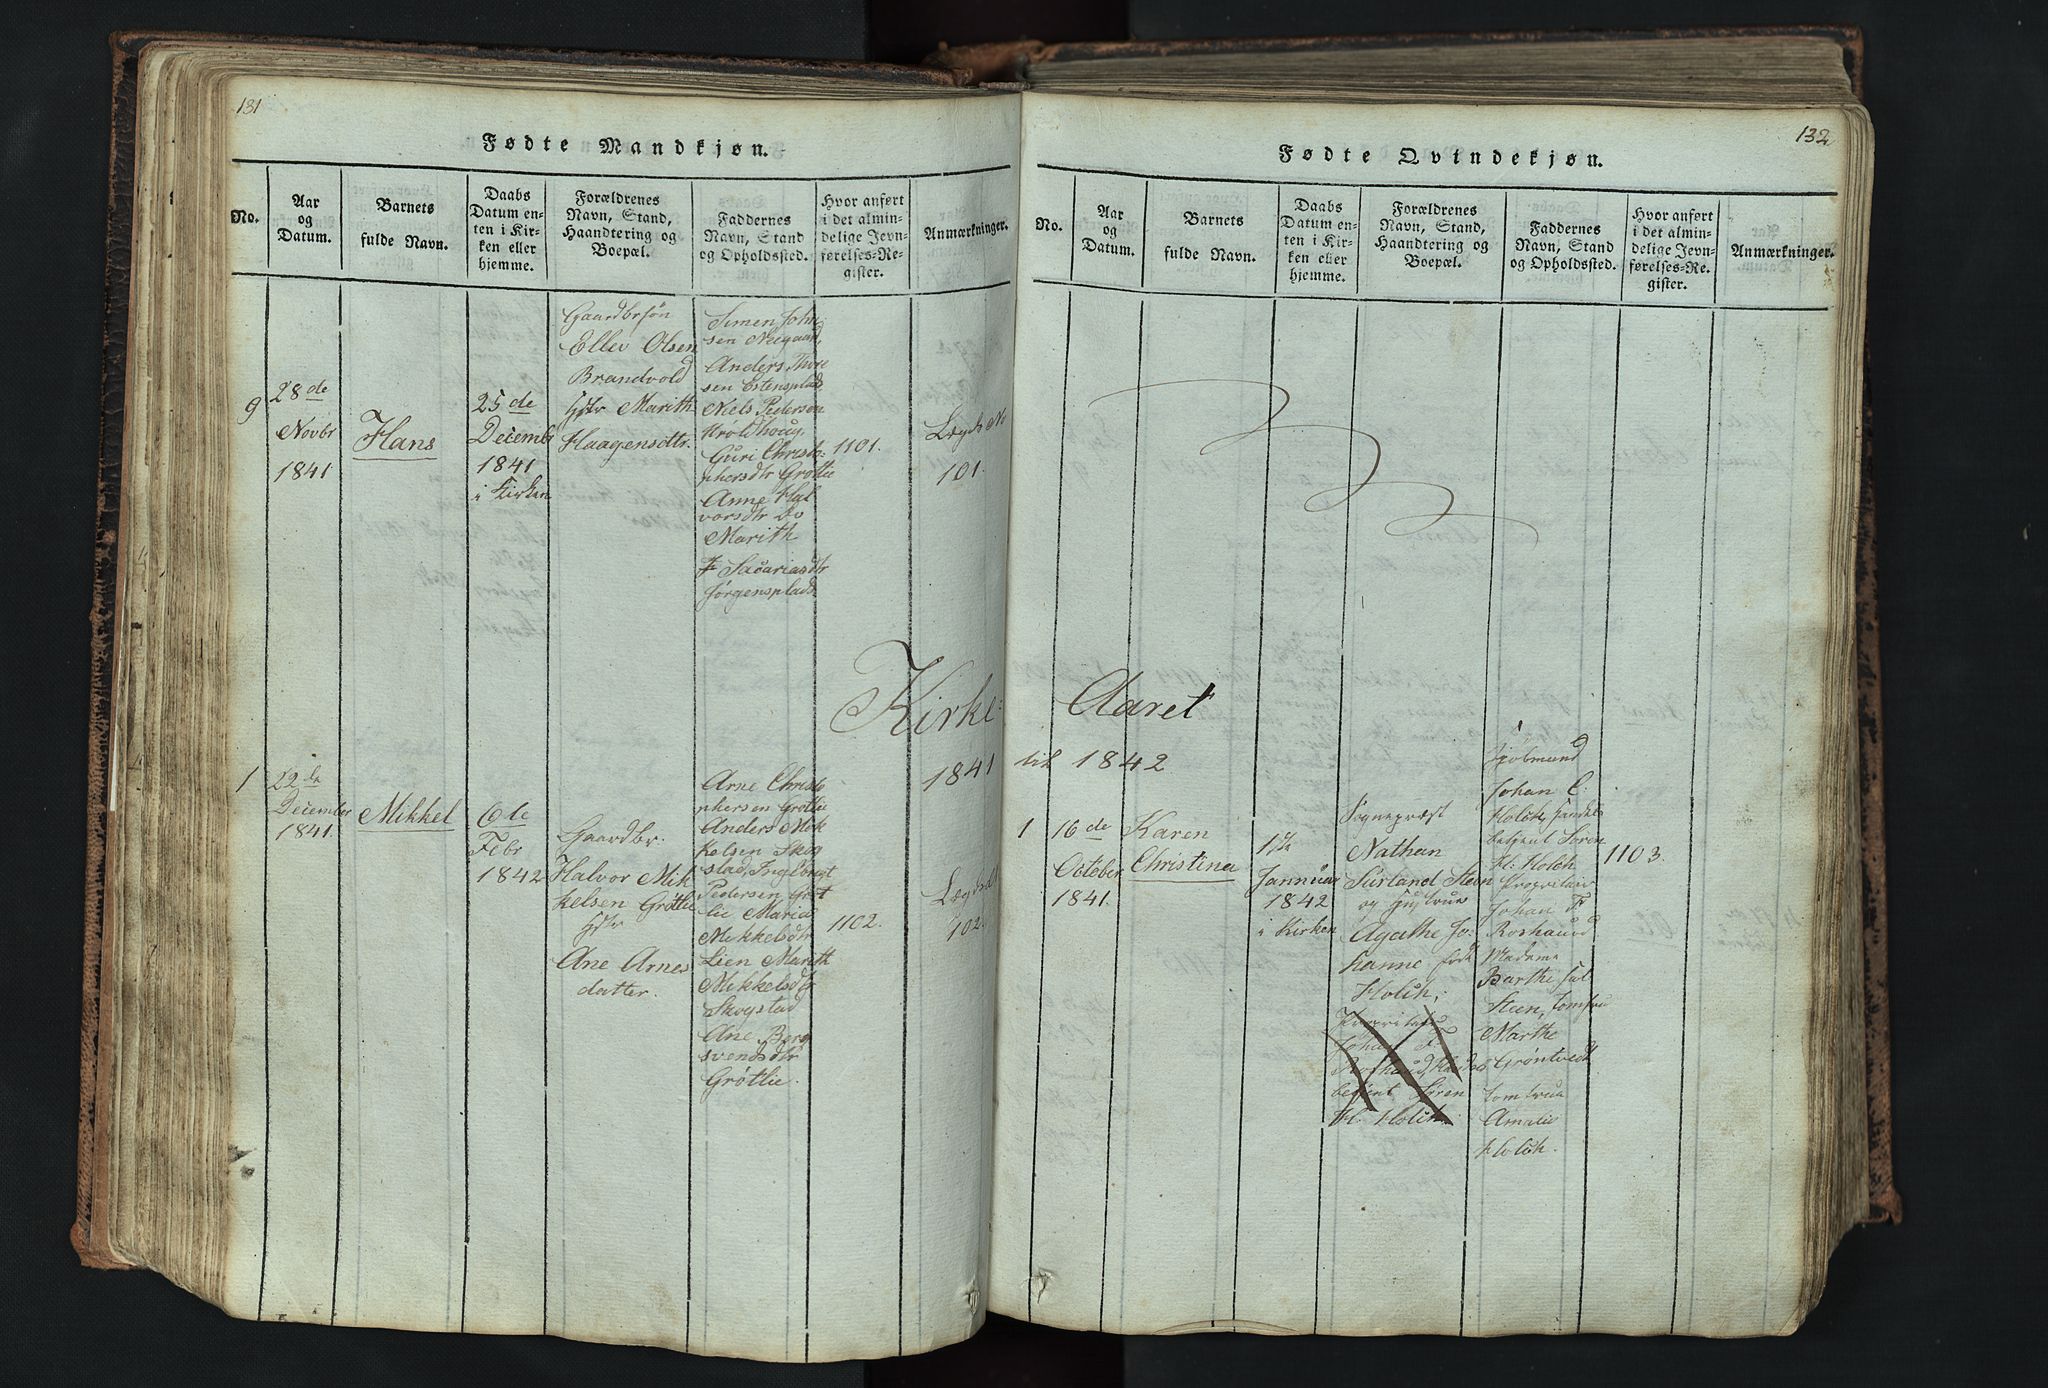 131
Fødte Mandkjøn.
No.
Aar
og
Datum.
Barnets
fulde Navn.
Daabs
Datum en-
ten i Kir-
ken eller
hjemme.
Forældrenes
Navn, Stand,
Haandtering og
Boepæl.
Faddernes
Navn, Stand
og Opholdssted.
Hvor anført
i det almin-
delige Jevn-
førelses-Re-
gister.
Anmærkninger.
9
28de
Novbr
1841
Hans
25de
Decembr
1841
i Kirken
Gaardbrsøn
Ellev Olsen
Brandvold
Hstr Marith
Haagensdtr.
Simen John
sen Neegaard,
Anders Thore
sen Estensplads
Niels Pedersen
Krøldhoug,
Guri Christo:
phersdtr Grøtlie
Anne Hal
vorsdtr Bo
Marith
Sacariasdtr
Jørgensplads
1101.
Lægds No
101.
Kirke:
1841
1
22de
December
1841.
Mikkel
6te
Febr
1842
Gaardbr.
Halvor Mik
kelsen Grøtlie
Hstr
Ane Arnes
datter.
Arne Christo
phersen Grøtlie
Anders Mik
kelsen Skog
stad, Ingebrigt
Pedersen Grøt
lie Maria
Mikkelsdtr
Lien Marith
Mikkelsdtr
Skogstad
Ane Berg
svendsdtr
Grøtlie.
1102.
102.
132
Fødte Qvindekjøn.
No.
Aar
og
Datum.
Barnets
fulde Navn.
Daabs
Datum en-
ten i Kir-
ken eller
hjemme.
Forældrenes
Navn, Stand,
Haandtering og
Boepæl.
Faddernes
Navn, Stand
og Opholdssted.
Hvor anført
i det almin-
delige Jevn-
førelses-Re-
gister.
Anmærkninger.
Aaret
til 1842
1
16de
October
1841.
Karen
Christina
Januar
1842
i Kirken
Sognepræst
Nathan
Steen
og Hustrue
Agathe Jo:
hanne fød
Holch;
Proprietair
Johan F.
begjent Søren
Kl. Holch.
Kjøbmand
Johan C.
Holch, Handels
betjent Søren
Kl: Holch
Proprietair
Johan F
Roshauud
Madame
Barthe Jul
Steen, Jomfru
Marthe
Grøntvedt
Jomfrue
Amalie
Holch.
1103.